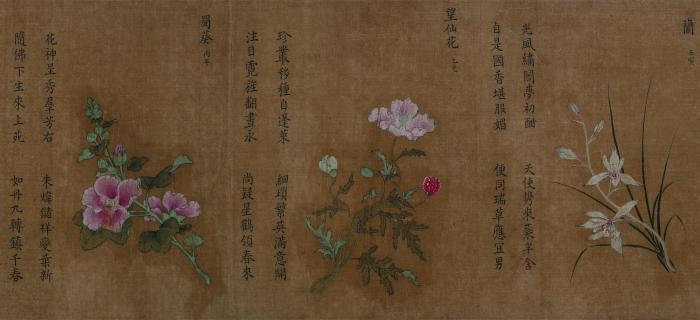 蘭
光風繡闥夢初酣 天使來草含
自是國香堪服媚 便同瑞草應宜男
望仙花
珍叢移種自蓬萊 細瑣英滿意開
注目霓旌翻晝永 尚疑星鶴領春來
蜀葵 丙午
花神呈秀羣芳右 朱煒儲祥奕葉新
隨佛下生來上苑 如丹九轉鎮千春